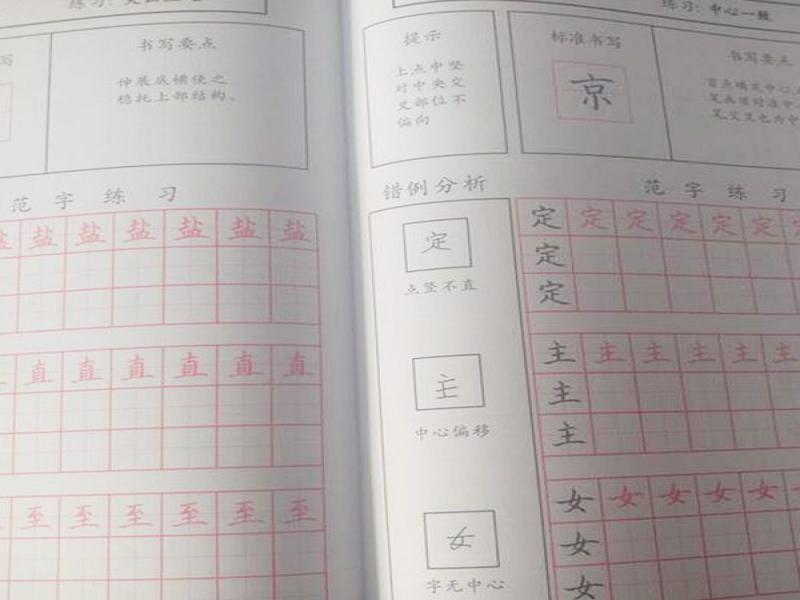 练习:
写
书写要点
伸展底横使之
稳托上部结构。
范字练习
盐盐盐盐盐盐
直直直直直直
至至至至至至
练习:中心一致
提示
上点中竖
对中央交
叉部位不
偏向
标准书写
京
书写要点
首点确定中心,
错例分析
定
点竖不直
主
中心偏移
女
字无中心
范字练习
定定定定定定
定
定
主主主主主主
主
主
女女女女女女
女
女